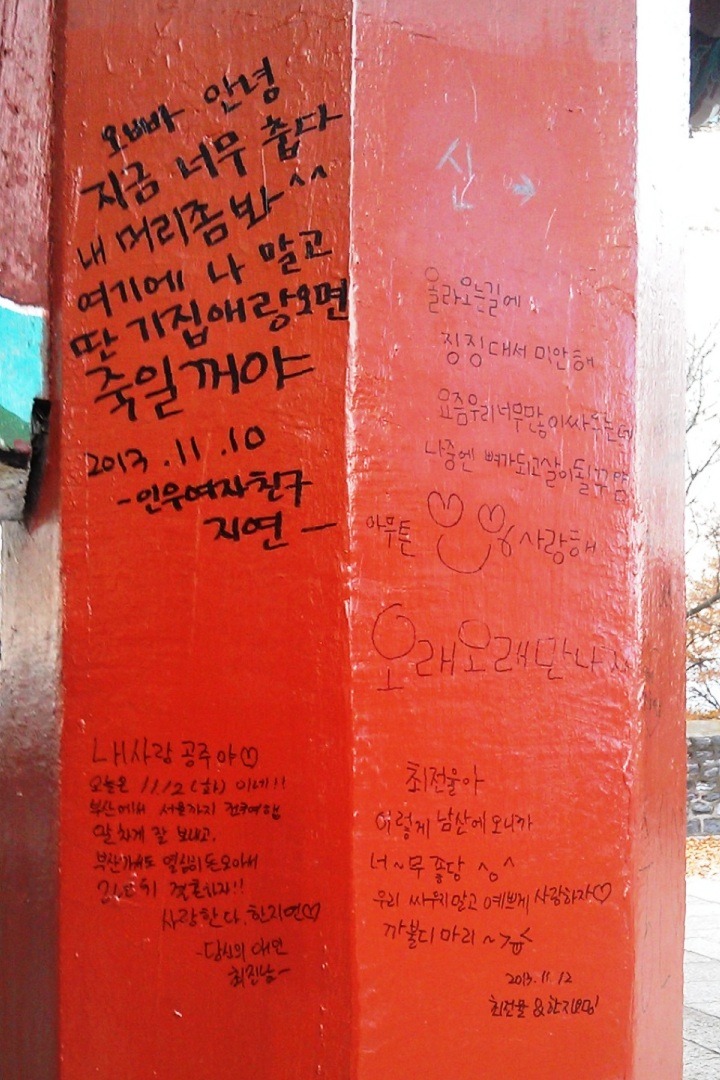 오빠 안녕
지금 너무 춥다
내 머리좀봐^^
여기에 나 말고
딴 기집애랑오면
죽일꺼야
2013.11.10
-인우여자친구
지연-
신→
올라오는길에
징징대서 미안해
요즘우리너무많이싸우는데
나중엔 뼈가되고살이될꾸얌
아무튼 사랑해
오래오래만나자
내사랑 공주야♡
오늘은 11/2(화) 이네!!
부산에서 서울까지 전국여행
알차게 잘 보내고,
부산가서도 열심히돈모아서
결혼하자!!
사랑한다.한지연♡
-당신의 애인
최진남-
최전울아
이렇게 남산에 오니까
너~무 좋당 ^o^
우리 싸우지말고 예쁘게 사랑하자♡
까불디 마리~
2013.11.12
최전울 &한지